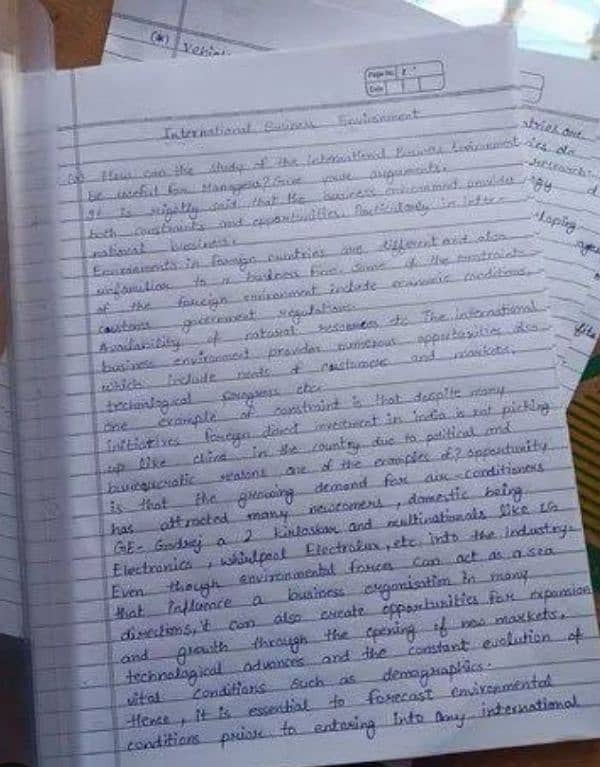 (*) Vehicl
Page No.
Date
International Business Environment
How can the study of the International Business Environment
be useful for Managers? Give your arguments.
It is rightly said that the business environment provides
both constraints and opportunities. Particularly in inter-
national business.
Environments in foreign countries are different and also
unfamiliar to a business firm. Some of the constraints
of the foreign environment include economic conditions,
customs government regulations.
Availability of natural resources etc. The international
business environment provides numerous opportunities also
which include needs of customers and markets,
technological progress etc.
One example of constraint is that despite many
initiatives foreign direct investment in india is not picking
up like china in the country due to political and
bureaucratic reasons one of the examples of? opportunity
is that the growing demand for air-conditioners
has attracted many newcomers, domestic being
GE-Godrej a 2 Kirloskar and multinationals like LG
Electronics, whirlpool Electrolux, etc. into the industry.
Even though environmental forces can act as a sea
that influence a business organisation in many
directions, it can also create opportunities for expansion
and growth through the opening of new markets,
technological advances and the constant evolution of
vital conditions such as demographics.
Hence, it is essential to forecast environmental
conditions prior to entering into any international